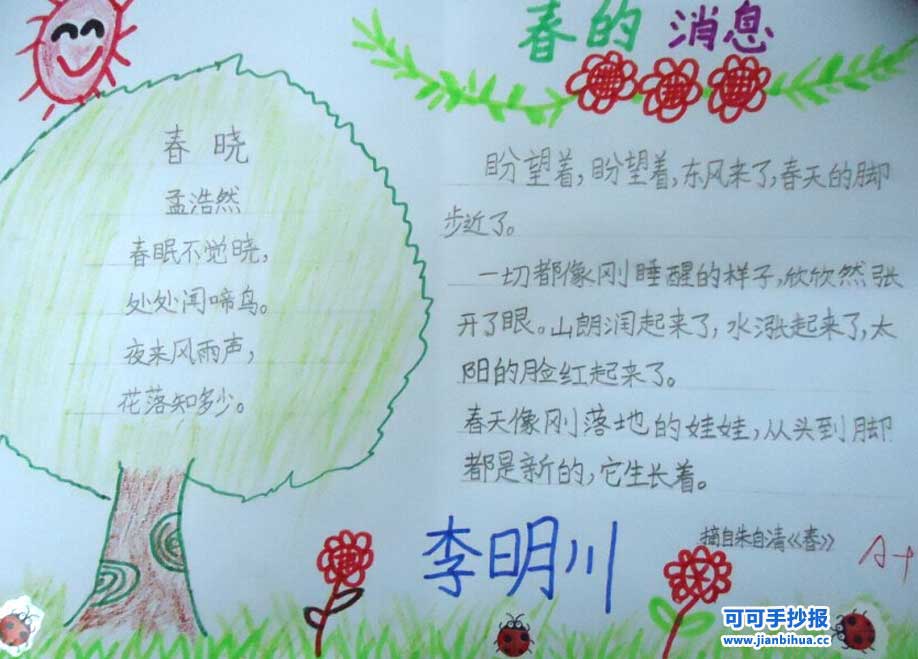 春的消息
春晓
孟浩然
春眠不觉晓，
处处闻啼鸟。
夜来风雨声，
花落知多少。
盼望着，盼望着，东风来了，春天的脚
步近了。
一切都像刚睡醒的样子，欣欣然张
开了眼。山朗润起来了，水涨起来了，太
阳的脸红起来了。
春天像刚落地的娃娃，从头到脚
都是新的，它生长着。
摘自朱自清《春》
李明川
A+
可可手抄报
www.jianbihua.cc